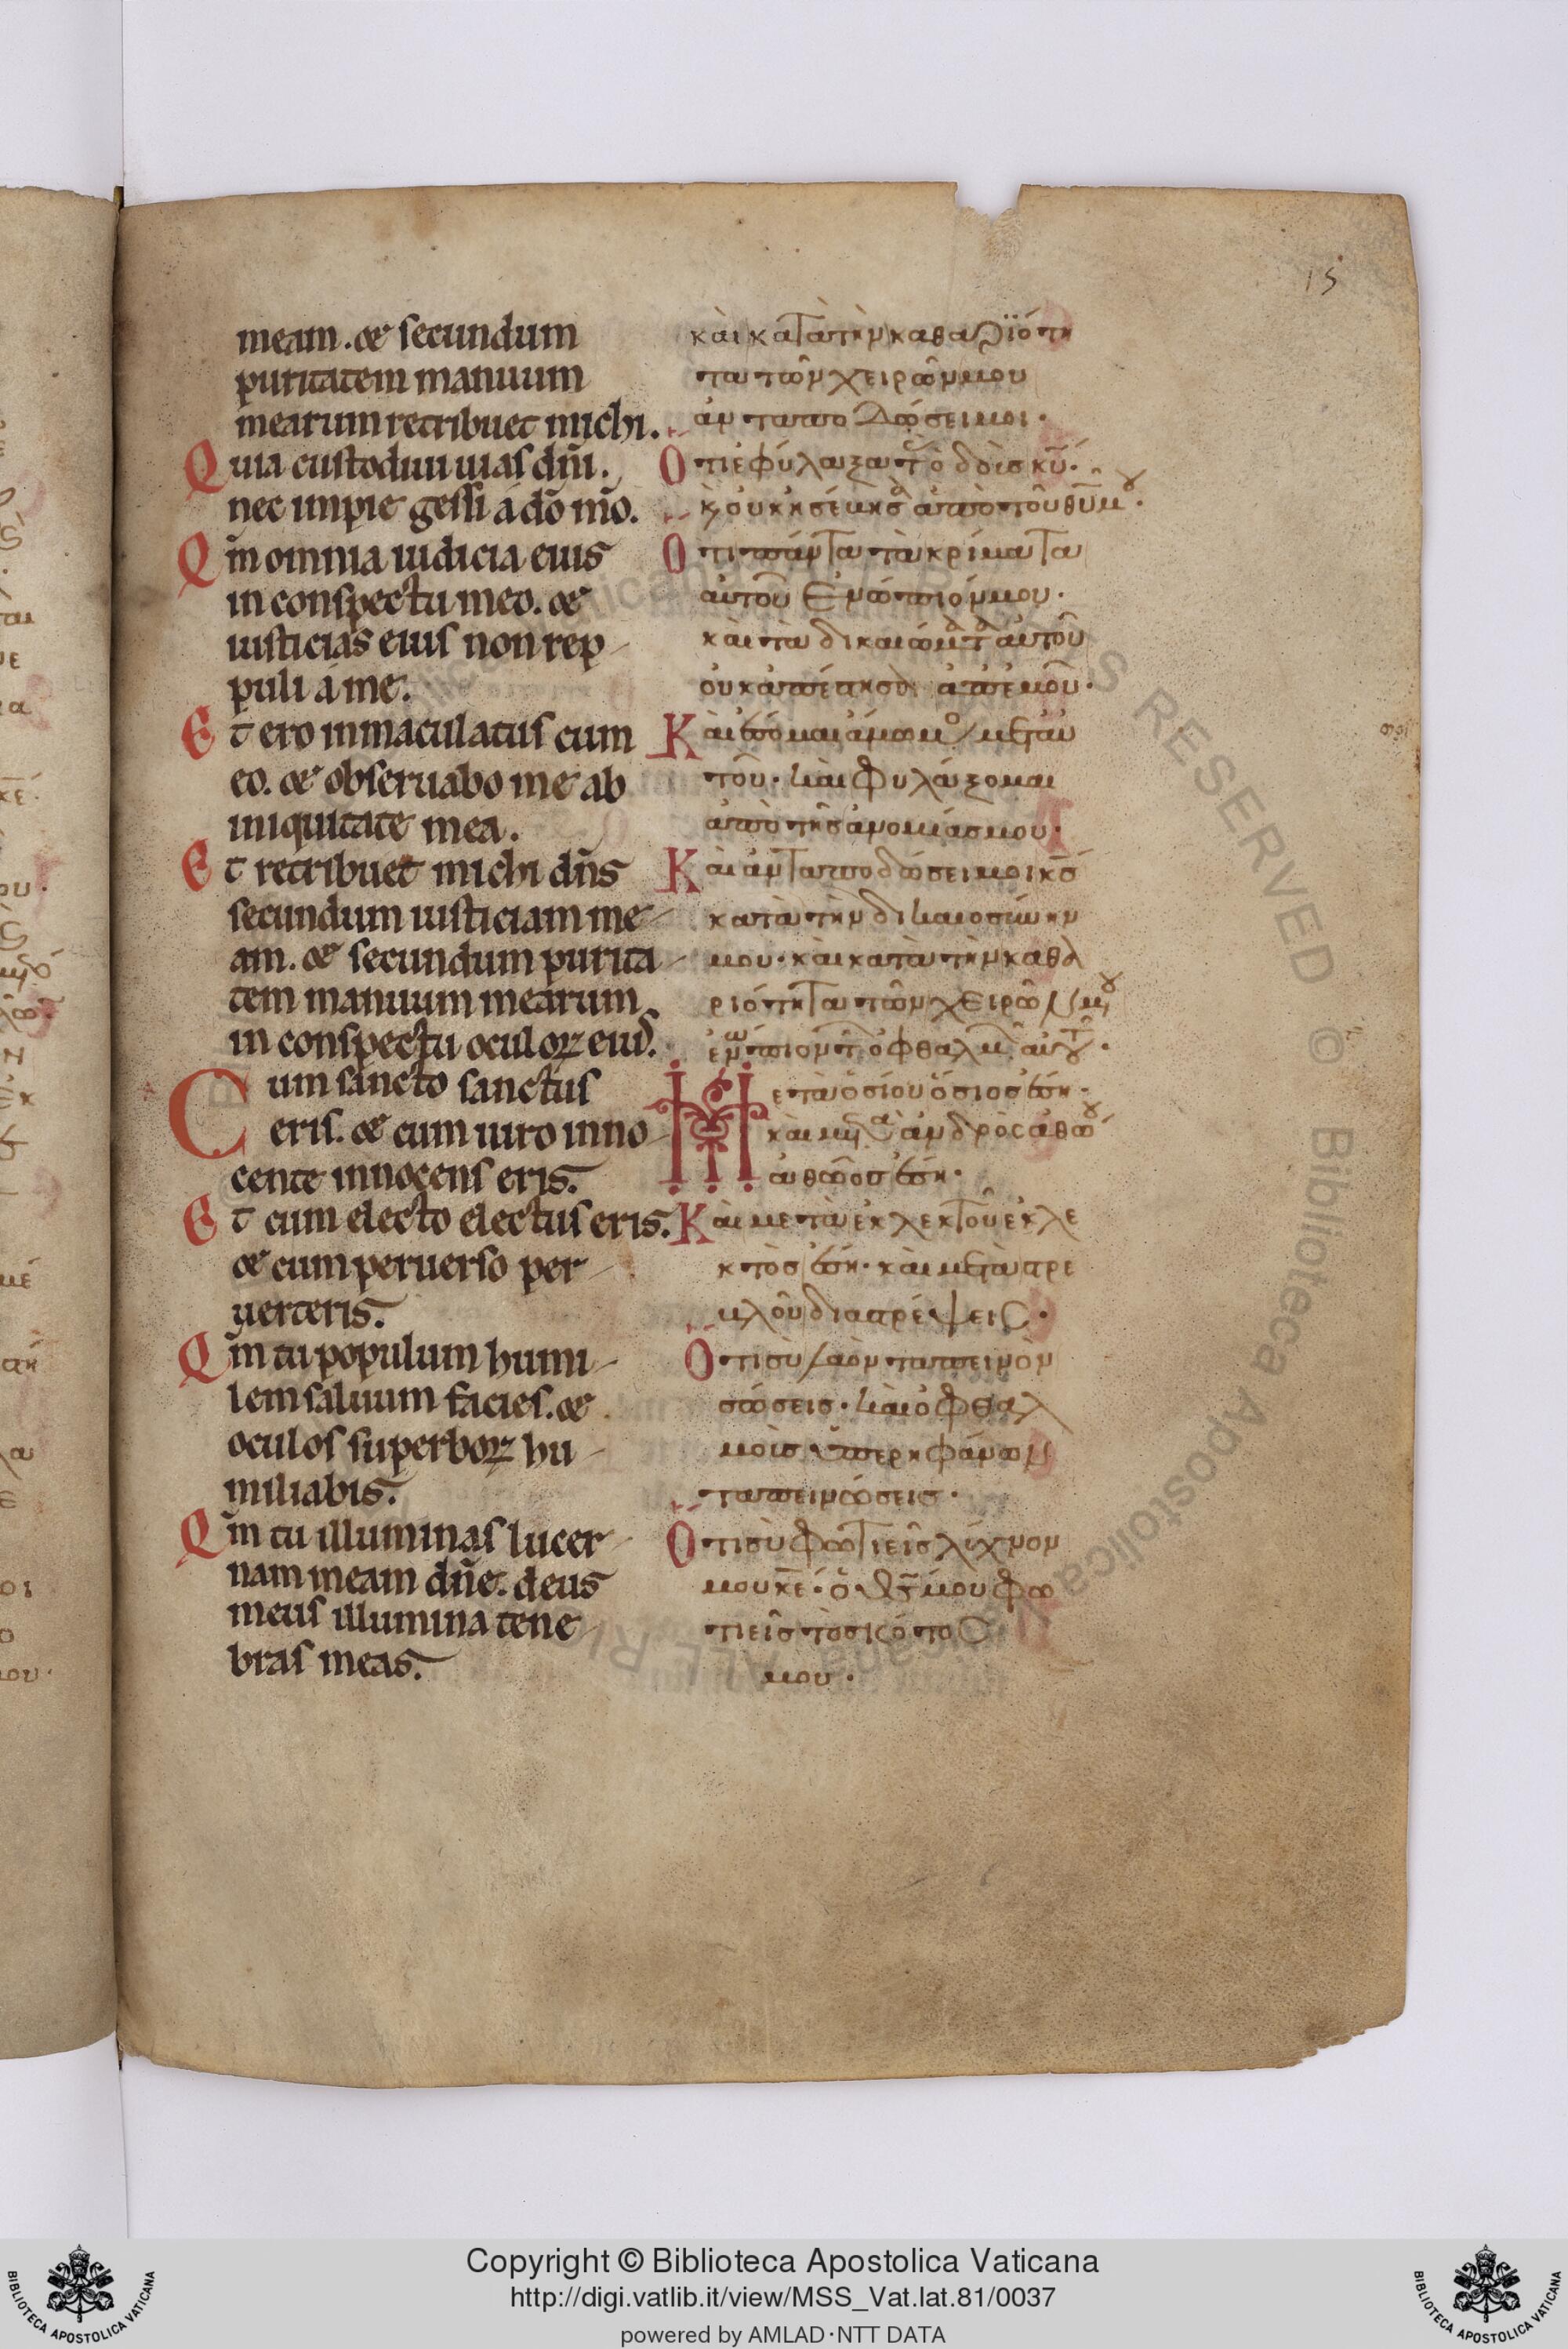 15
meam. & secundum
puritatem manuum
mearum retribuet michi.
Quia custodiui uias dñi.
nec impie gessi á dō mō.
Qm̄ omnia iudicia eius
in conspectu meo. &
iusticias eius non rep-
puli á me.
Et ero inmaculatus cum
eo. & obseruabo me ab
iniquitate mea.
Et retribuet michi dn̄s
secundum iusticiam me-
am. & secundum purita-
tem manuum mearum
in conspectu oculoꝝ eius.
Cum sancto sanctus
eris. & cum uiro inno-
cente innocens eris.
Et cum electo electus eris.
& cum peruerso per-
uerteris.
Qm̄ tu populum humi-
lem saluum facies. &
oculos superboꝝ hu-
miliabis.
Qm̄ tu illuminas lucer-
nam meam dn̄e. deus
meus illumina tene-
bras meas.
κὰι κατὰ τὴν καθαριότη
τα τῶν χειρῶν μου
ἀνταποδώσει μοι·
Ὅτι ἐφύλαξα τ̀ ὁδὀις κῡ·
κ̀ οὐκ ἠσέβησα ἀπὸ τοῦ θῡ μȣ·
Ὅτι πάντα τὰ κρίματα
αὐτοῦ ἐνώπιόν μου·
κὰι τὰ δικαιώματα αὐτοῦ
οὐκ ἀπέστησαν ἀπ ἐμοῦ·
Κὰι ἔσομαι ἄμωμος μετ αὐ
τοῦ· κὰι φυλάξομαι
ἀπὸ τῆς ἀνομίας μου·
Κὰι ἀνταποδώσει μοι κ̄ς
κατὰ τὴν δικαιοσύνην
μου· κὰι κατὰ τὴν καθα
ριότητα τῶν χειρῶν μȣ
ἐνώπιον τ̂ ὀφθαλμ̂ αὐτȣ̂·
Μετὰ ὁσίου ὅσιος ἔση·
κὰι μετὰ ἀνδρὸς ἀθώȣ
ἀθῶος ἔση·
Κὰι μετὰ ἐκλεκτοῦ ἐκλε
κτὸς ἔση· κὰι μετὰ στρε
βλοῦ διαστρέψεις·
Ὅτι σὺ λαὸν ταπεινὸν
σώσεις· κὰι ὀφθαλ
μοὶς ὑπερηφάνων
ταπεινώσεις·
Ὅτι σὺ φωτιεῖς λύχνον
μου κ̄ε· ὁ θ̄ς μου φω
τιεῖς τὸ σκότος
μου·
Copyright © Biblioteca Apostolica Vaticana
http://digi.vatlib.it/view/MSS_Vat.lat.81/0037
powered by AMLAD·NTT DATA
BIBLIOTECA APOSTOLICA VATICANA
BIBLIOTECA APOSTOLICA VATICANA